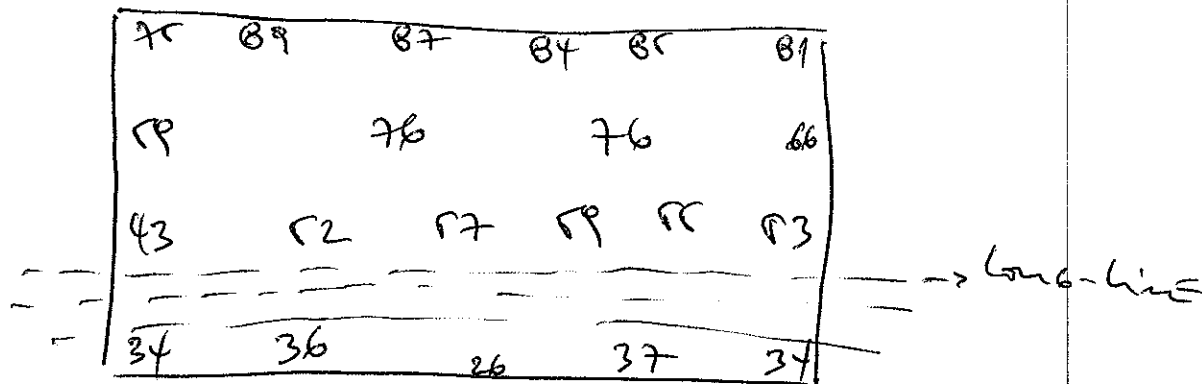 75 89 87 84 85 81
59 76 76 66
43 52 57 59 55 53
→ Long-Line
34 36 26 37 34